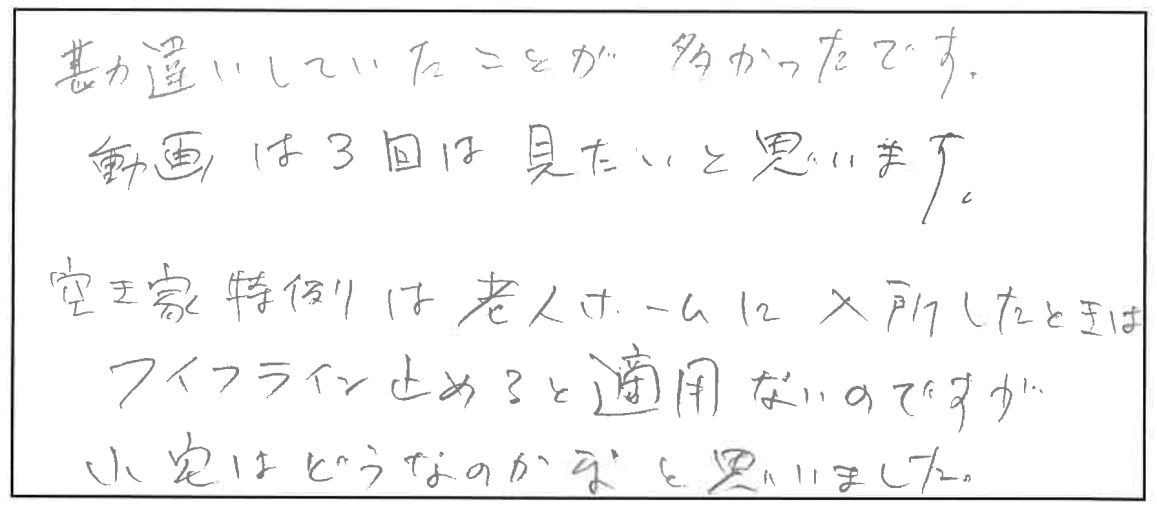 勘違いしていたことが多かったです。
動画は3回は見たいと思います。
空き家特例は老人ホームに入所したときは
ライフライン止めると適用ないのですが
小宅はどうなのかなと思いました。